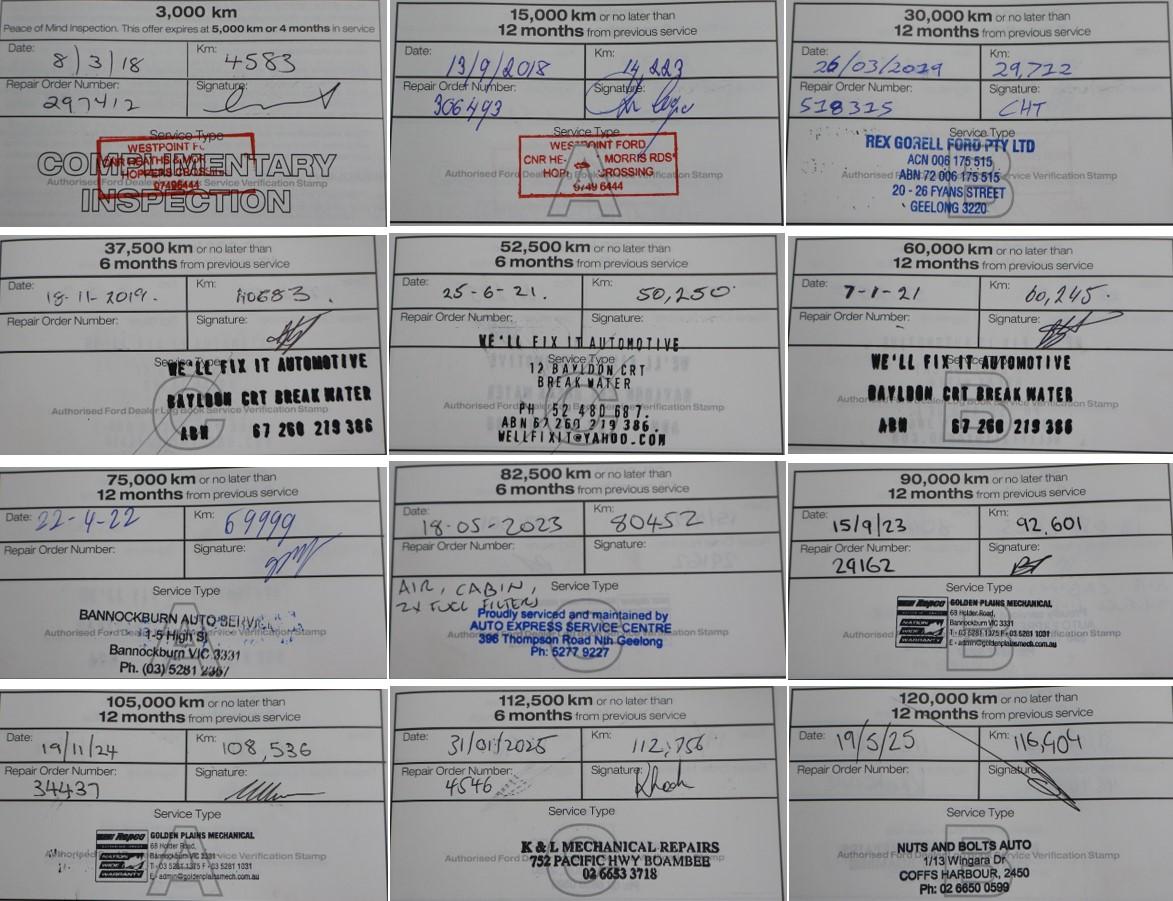 3,000 km
Peace of Mind Inspection. This offer expires at 5,000 km or 4 months in service
Date: 8/3/18 Km: 4583
Repair Order Number: 297412 Signature:
Service Type
COMPLIMENTARY
INSPECTION
Authorised Ford Dealer Service Verification Stamp
WESTPOINT
HOPPERS CROSSING
97496444
15,000 km or no later than
12 months from previous service
Date: 13/9/2018 Km: 14,223
Repair Order Number: 306493 Signature:
Service Type
A
WESTPOINT FORD
CNR HE MORRIS RDS
HOPP CROSSING
9749 6444
Authorised Ford Service Verification Stamp
30,000 km or no later than
12 months from previous service
Date: 26/03/2019 Km: 29,712
Repair Order Number: 518315 Signature: CHT
Service Type
B
REX GORELL FORD PTY LTD
ACN 006 175 515
ABN 72 006 175 515
20 - 26 FYANS STREET
GEELONG 3220
37,500 km or no later than
6 months from previous service
Date: 18-11-2019. Km: 40683.
Repair Order Number: Signature:
Service Type
C
WE'LL FIX IT AUTOMOTIVE
BAYLDON CRT BREAK WATER
Authorised Ford Dealer Log Book Service Verification Stamp
ABN 67 260 219 386
52,500 km or no later than
6 months from previous service
Date: 25-6-21. Km: 50,250.
Repair Order Number: Signature:
WE'LL FIX IT AUTOMOTIVE
Service Type
12 BAYLDON CRT
BREAK WATER
Authorised Ford Verification Stamp
PH 52 480 687.
ABN 67 260 219 386.
WELLFIXIT@YAHOO.COM
60,000 km or no later than
12 months from previous service
Date: 7-1-21 Km: 60,245.
Repair Order Number: Signature:
Service Type
B
WE'LL FIX IT AUTOMOTIVE
BAYLDON CRT BREAK WATER
ABN 67 260 219 386
75,000 km or no later than
12 months from previous service
Date: 22-4-22 Km: 69999
Repair Order Number: Signature:
Service Type
A
BANNOCKBURN AUTO SERVI
1-5 High St
Bannockburn VIC 3331
Ph. (03) 5281 2357
82,500 km or no later than
6 months from previous service
Date: 18-05-2023 Km: 80452
Repair Order Number: Signature:
Service Type
AIR, CABIN,
2X FUEL FILTER
Proudly serviced and maintained by
AUTO EXPRESS SERVICE CENTRE
396 Thompson Road Nth Geelong
Ph: 5277 9227
C
90,000 km or no later than
12 months from previous service
Date: 15/9/23 Km: 92,601
Repair Order Number: 29162 Signature:
Service Type
B
Repco GOLDEN PLAINS MECHANICAL
68 Holder Road,
NATION Bannockburn VIC 3331
WIDE T - 03 5281 1375 F - 03 5281 1031
WARRANTY E - admin@goldenplainsmech.com.au
105,000 km or no later than
12 months from previous service
Date: 19/11/24 Km: 108,536
Repair Order Number: 34437 Signature:
Service Type
A
Repco GOLDEN PLAINS MECHANICAL
68 Holder Road,
NATION Bannockburn VIC 3331
WIDE T - 03 5281 1375 F - 03 5281 1031
WARRANTY E - admin@goldenplainsmech.com.au
112,500 km or no later than
6 months from previous service
Date: 31/01/2025 Km: 112,756
Repair Order Number: 4546 Signature:
Service Type
C
K & L MECHANICAL REPAIRS
752 PACIFIC HWY BOAMBEE
02 6653 3718
120,000 km or no later than
12 months from previous service
Date: 19/5/25 Km: 116,404
Repair Order Number: Signature:
Service Type
B
NUTS AND BOLTS AUTO
1/13 Wingara Dr
COFFS HARBOUR, 2450
Ph: 02 6650 0599